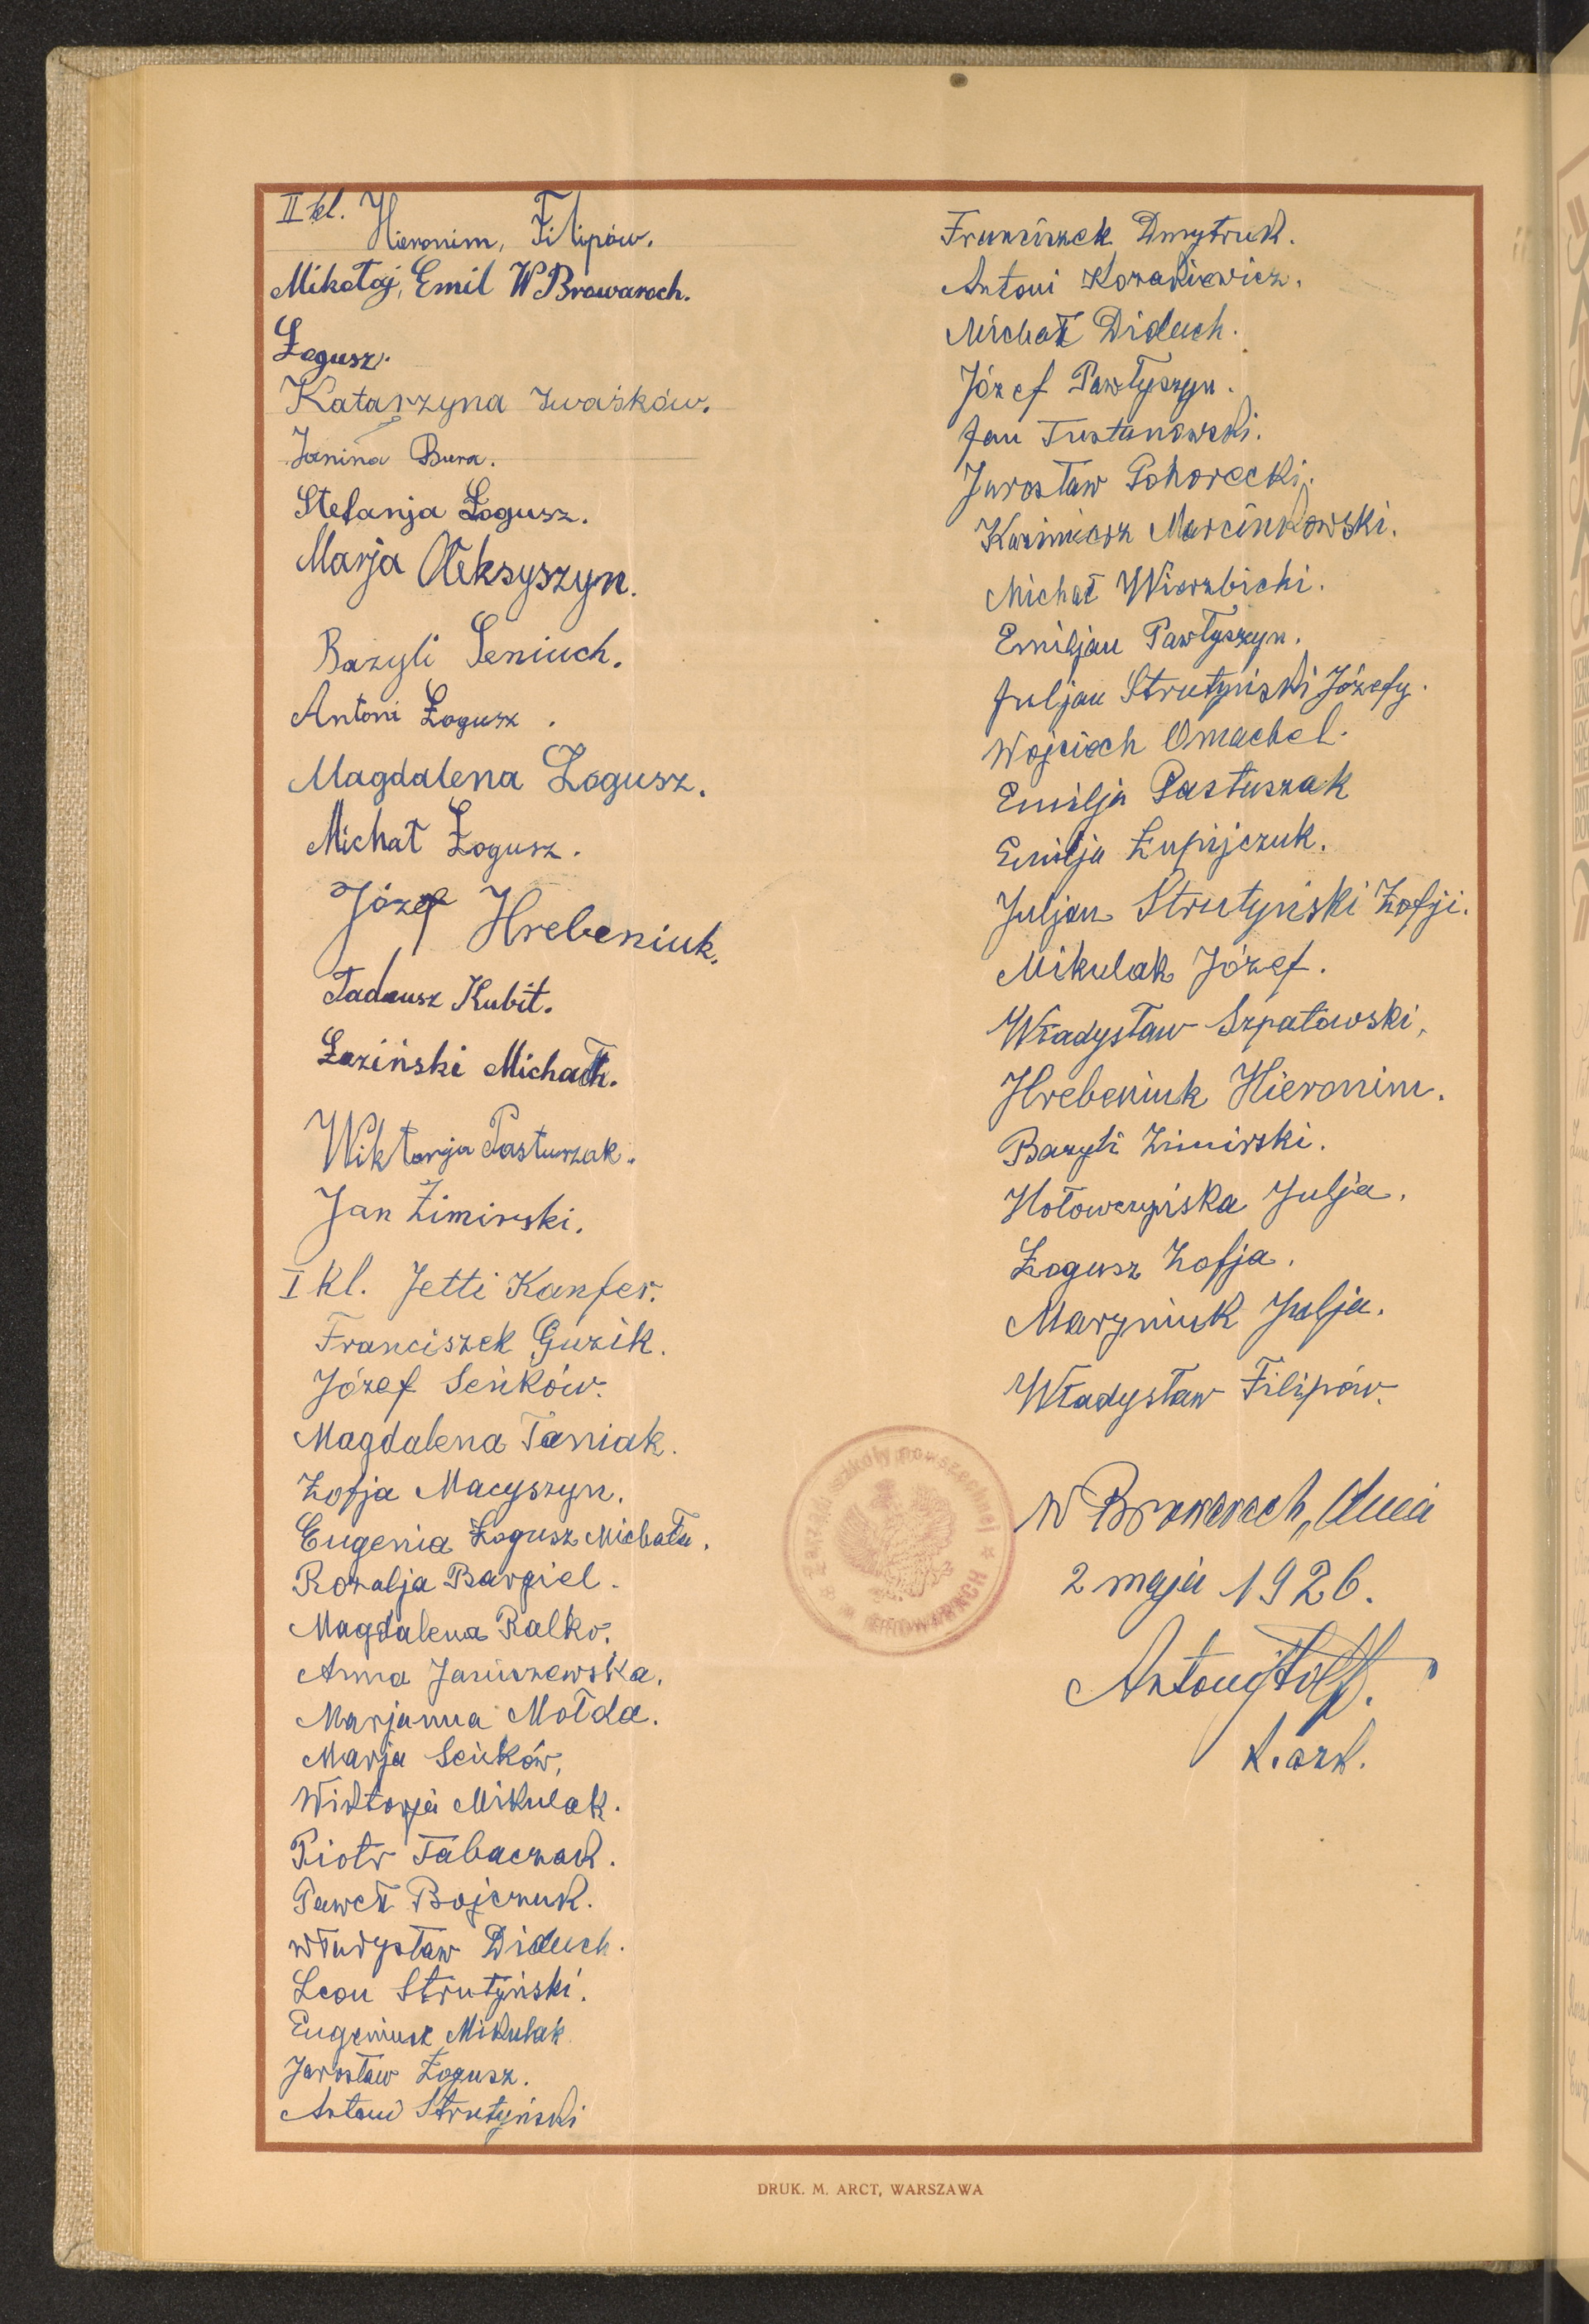 II kl. Hieronim, Filipów.
Mikołaj, Emil W Browarach.
Łogusz.
Katarzyna Iwaśków.
Janina Bura.
Stefanja Łogusz.
Marja Ołeksyszyn.
Bazyli Seniuch.
Antoni Łogusz.
Magdalena Łogusz.
Michał Łogusz.
Józef Hrebeniuk.
Tadeusz Kubit.
Łoziński Michał.
Wiktorja Pastuszak.
Jan Zimirski.
I kl. Jetti Kanfer.
Franciszek Guzik.
Józef Seńków.
Magdalena Taniak.
Zofja Macyszyn.
Eugenia Łogusz Michała.
Rozalja Bargiel.
Magdalena Ralko.
Anna Januszewska.
Marjanna Mołda.
Marja Seńków,
Wiktorja Mikulak.
Piotr Tabaczak.
Paweł Bojczuk.
Władysław Diduch.
Leon Strutyński.
Eugeniusz Mikulak
Jarosław Łogusz.
Antoni Strutyński
Franciszek Dmytruk.
Antoni Kozakiewicz.
Michał Diduch.
Józef Pawłyszyn.
Jan Trustanowski.
Jarosław Pohorecki.
Kazimierz Marcinkowski.
Michał Wierzbicki.
Emiljan Pawłyszyn.
Juljan Strutyński Józefy.
Wojciech Omachel.
Emilja Pastuszak
Emilja Łupijczuk.
Juljan Strutyński Zofji.
Mikulak Józef.
Władysław Szpatowski.
Hrebeniuk Hieronim.
Bazyli Zimirski.
Hołowczyńska Julja.
Łogusz Zofja.
Maryniuk Julja.
Władysław Filipów.
Zarząd szkoły powszechnej
w BROWARACH
W Browarach, dnia
2 maja 1926.
Antoni
DRUK. M. ARCT, WARSZAWA